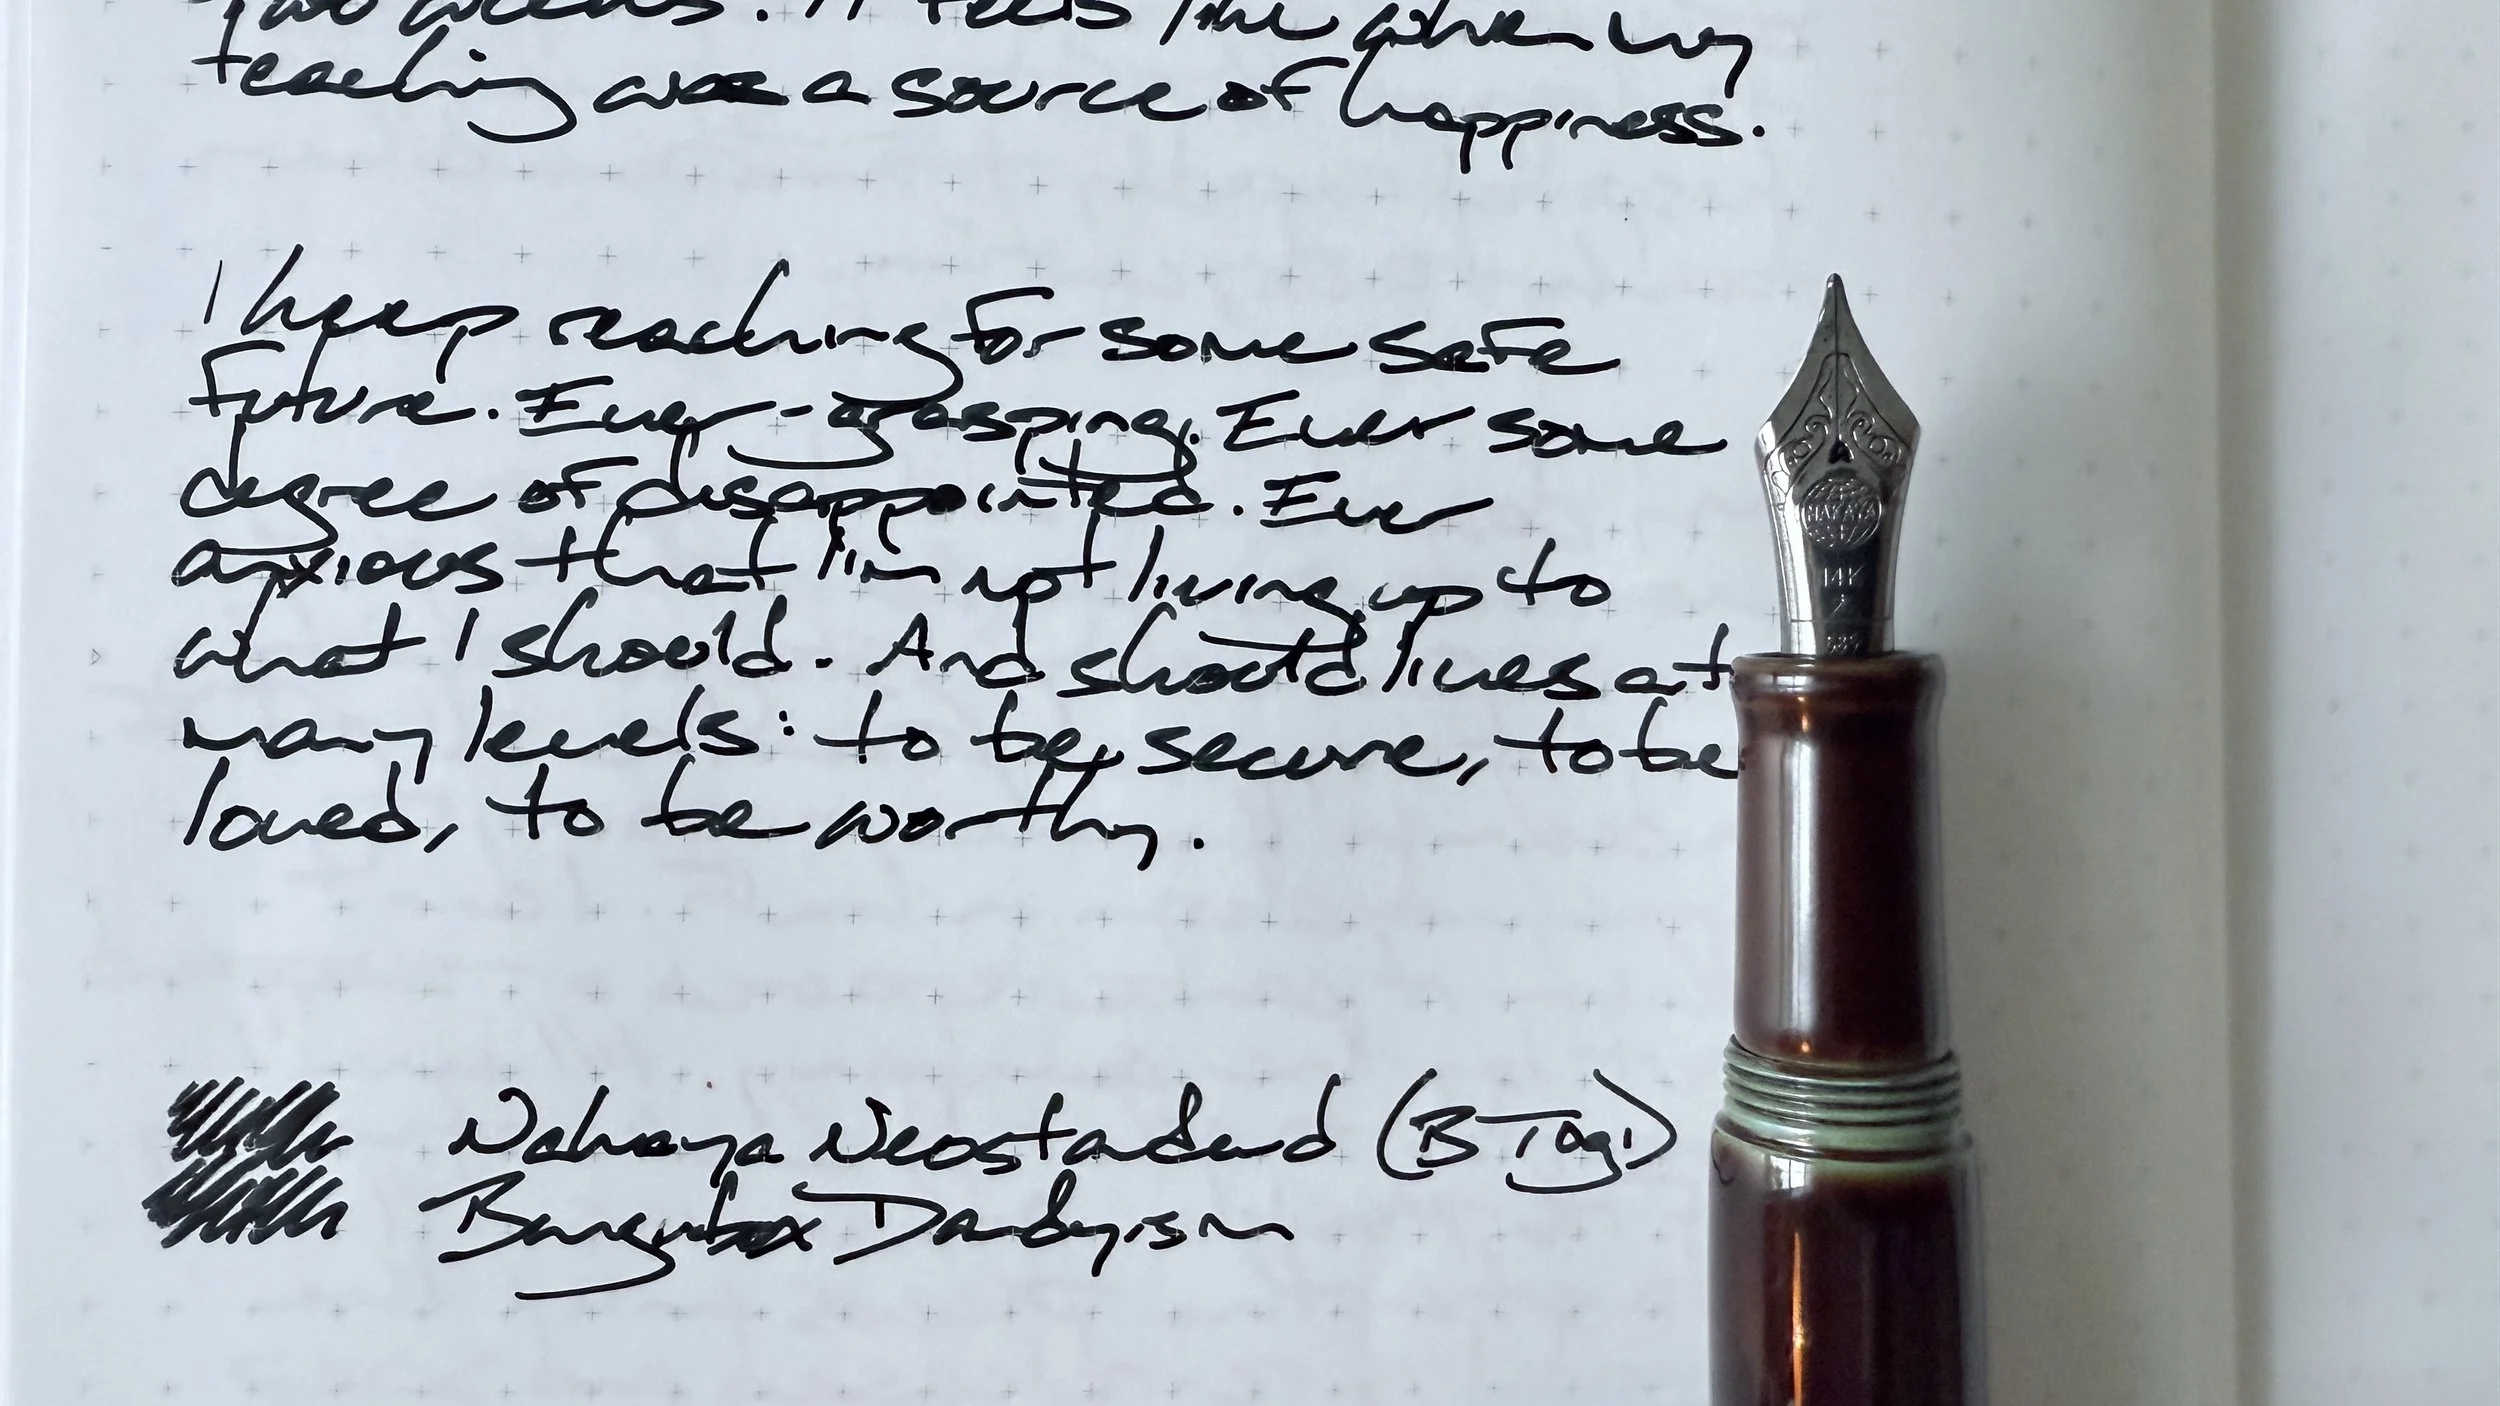 two weeks. It feels like when my
teaching was a source of happiness.
I keep reaching for some safe
future. Ever-grasping. Ever some
degree of disappointed. Ever
anxious that I'm not living up to
what I should. And should lives at
many levels: to be secure, to be
loved, to be worthy.
Nakaya Neostandard (B Togi)
Bungubox Dandyism
NAKAYA
14K
585